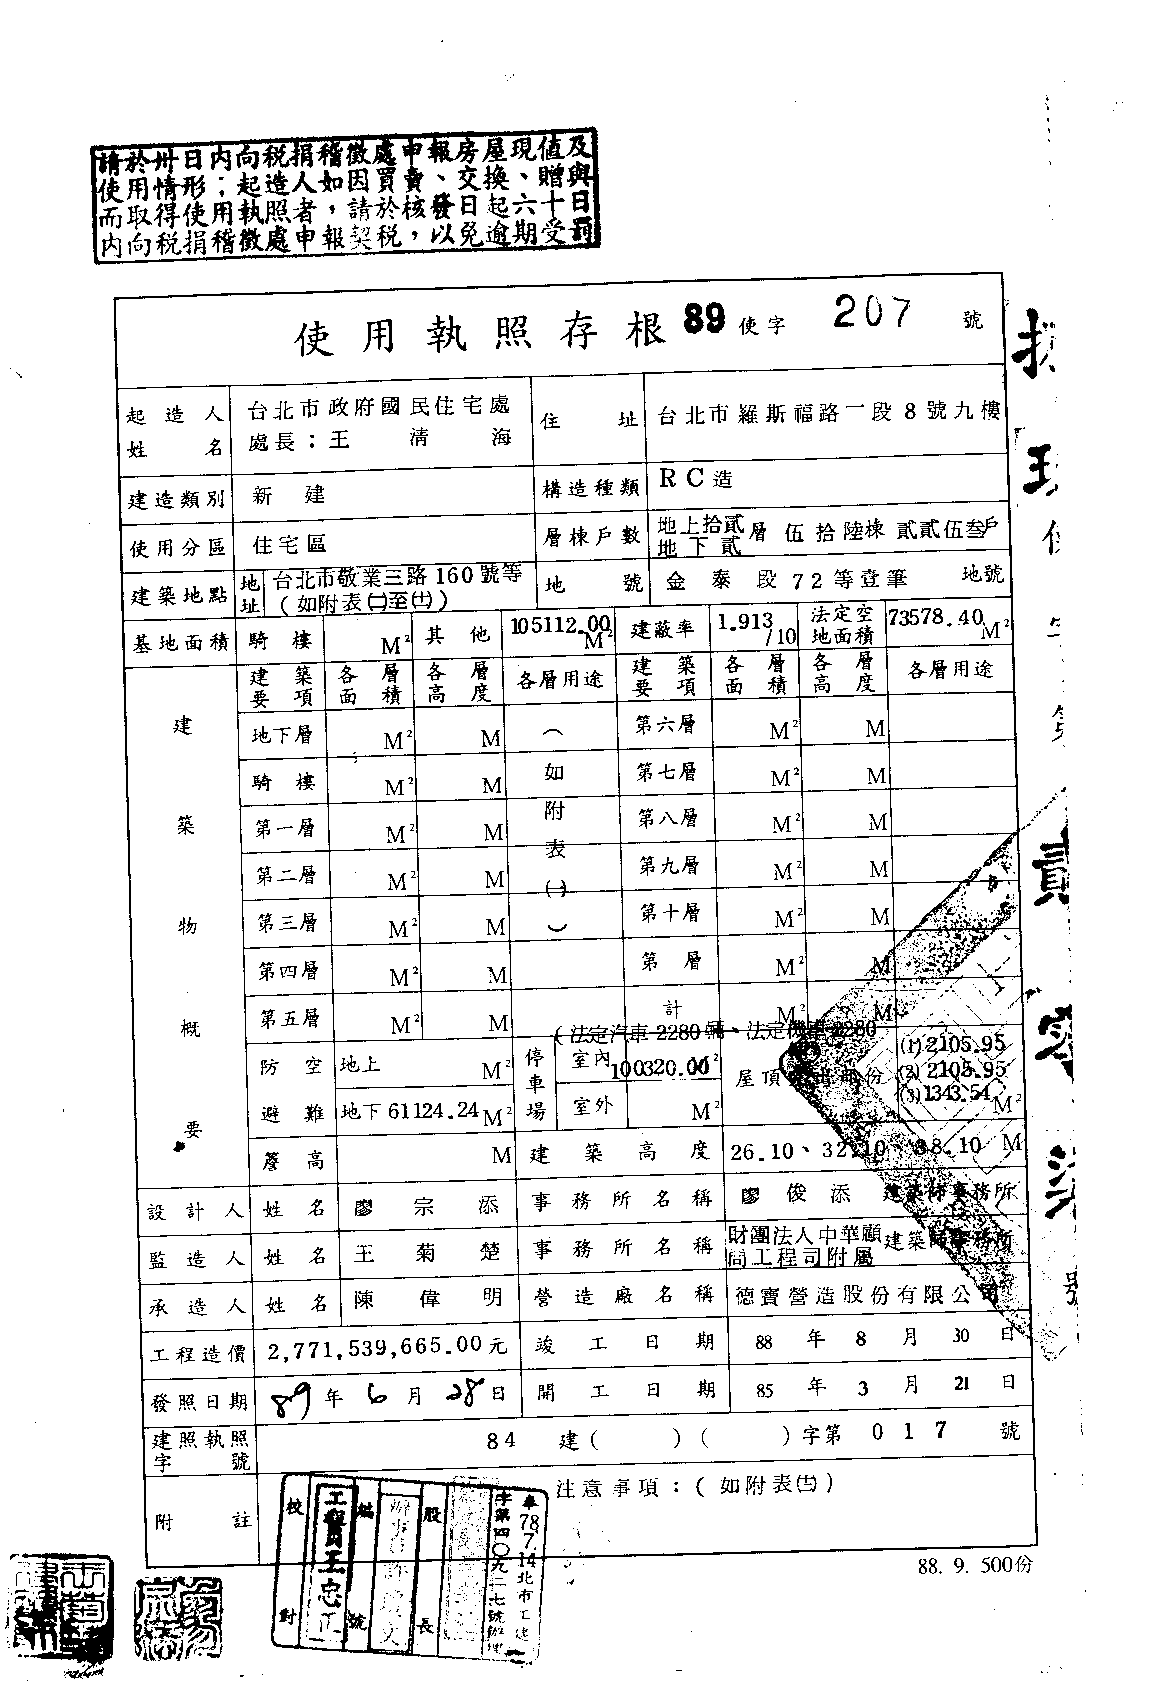 請於卅日內向稅捐稽徵處申報房屋現值及
使用情形；起造人如因買賣、交換、贈與
而取得使用執照者，請於核發日起六十日
內向稅捐稽徵處申報契稅，以免逾期受罰
使用執照存根 89 使字 207 號
起造人姓名 台北市政府國民住宅處 處長：王清海 住址 台北市羅斯福路一段8號九樓
建造類別 新建 構造種類 RC造
使用分區 住宅區 層棟戶數 地上拾貳 地下貳 層 伍拾陸棟 貳貳伍叁戶
建築地點 地址 台北市敬業三路160號等 (如附表㈡至㈩) 地號 金泰段72等壹筆 地號
基地面積 騎樓 M² 其他 105112.00 M² 建蔽率 1.913/10 法定空地面積 73578.40 M²
建築物概要
建築要項 各層面積 各層高度 各層用途 建築要項 各層面積 各層高度 各層用途
地下層 M² M (如附表㈠) 第六層 M² M
騎樓 M² M 第七層 M² M
第一層 M² M 第八層 M² M
第二層 M² M 第九層 M² M
第三層 M² M 第十層 M² M
第四層 M² M 第 層 M² M
第五層 M² M 計 M² M
(法定汽車2280輛、法定機車2280
防空避難 地上 M² 停車場 室內 100320.00 M² 屋頂 (1)2105.95
(2)2105.95
(3)1343.54 M²
地下 61124.24 M² 室外 M²
簷高 M 建築高度 26.10、32.10、38.10 M
設計人 姓名 廖宗添 事務所名稱 廖俊添 建築師事務所
監造人 姓名 王菊楚 事務所名稱 財團法人中華顧問工程司附屬 建築師事務所
承造人 姓名 陳偉明 營造廠名稱 德寶營造股份有限公司
工程造價 2,771,539,665.00元 竣工日期 88年8月30日
發照日期 89年6月28日 開工日期 85年3月21日
建照執照字號 84 建( )( )字第 017 號
附註 注意事項：(如附表㈩)
校對 工寶王忠正 號 股長
奉78.7.14北市工建
字第四〇九二七號辦理
88. 9. 500份